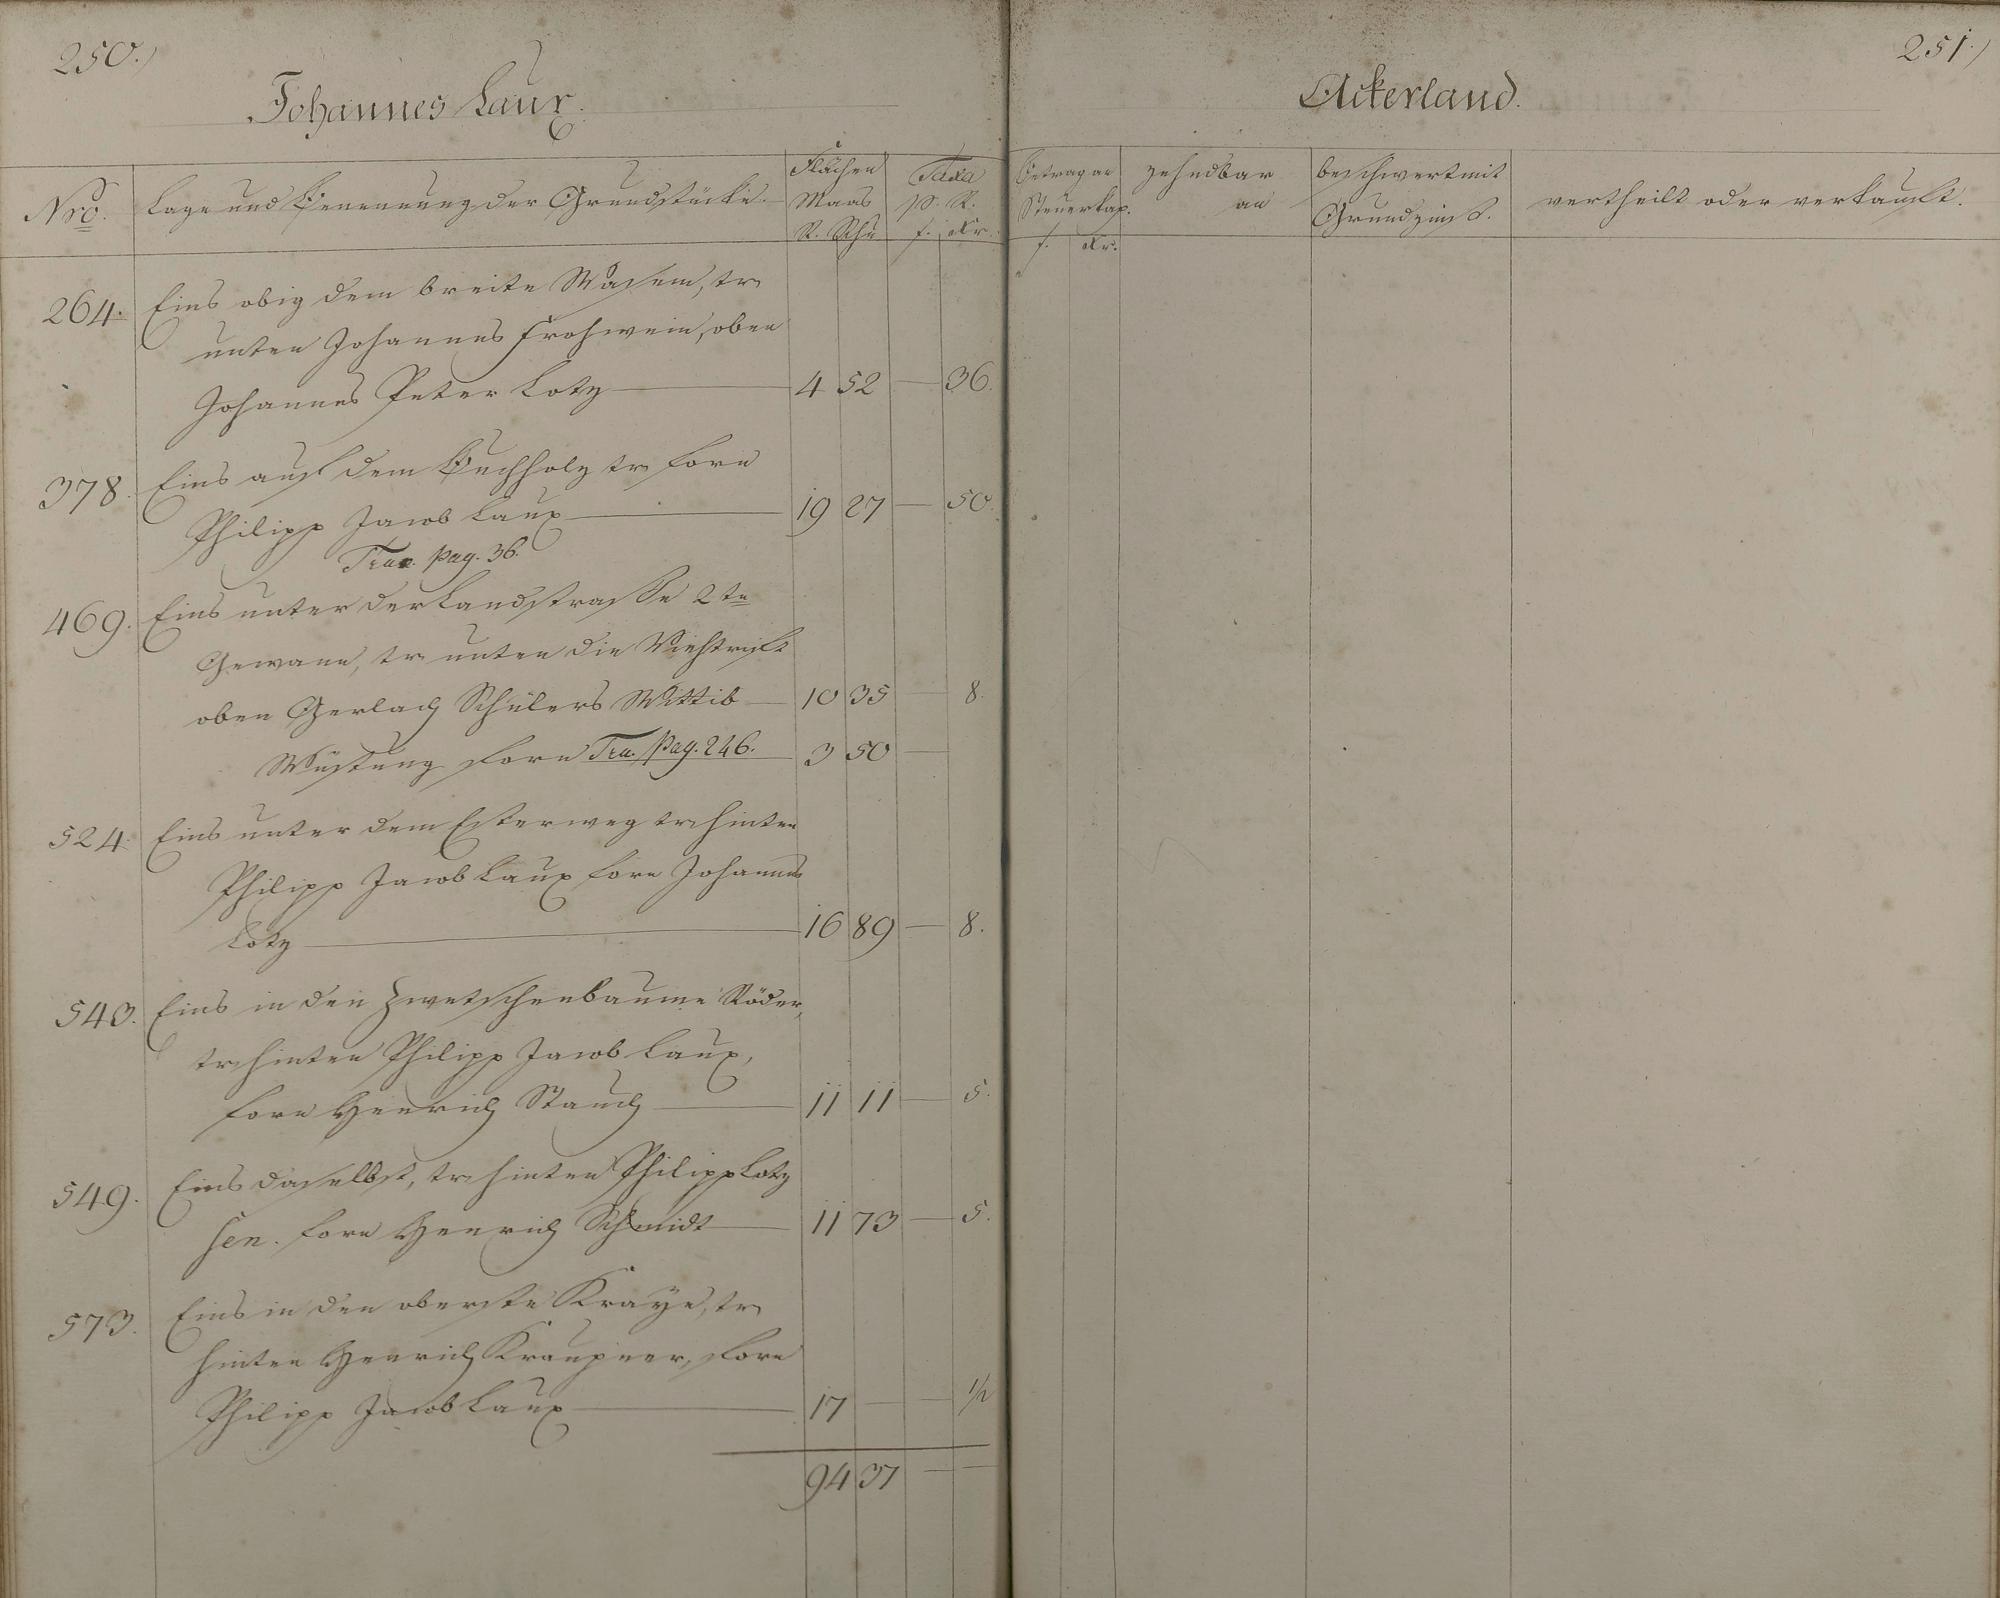 250.)
Johannes Laux.
Nro.
Lage und Benennung der Grundstücke.
Flächen
Maas
R. Schu
Taxa
p. R.
f. Kr.
264. Eins obig dem breite Wasem, tr
unten Johannes Frohwein, oben
Johannes Peter Lotz — 4 52 — 36.
378. Eins auf dem Buchholz tr forn
Philipp Jacob Laux — 19 27 — 50.
Tran. pag. 36.
469. Eins unter der Landstrasse 2te
Gewann, tr unten die Viehtrift
oben Gerlach Schülers Wittib — 10 35 — 8.
Wüstung forn Tra. Pag. 246. 3 50 —
524. Eins unter dem Esterweg tr hinten
Philipp Jacob Laux forn Johannes
Lotz — 16 89 — 8.
543. Eins in den Zwetschenbaume Röder,
tr hinten Philipp Jacob Laux,
forn Henrich Stauch — 11 11 — 5.
549. Eins daselbst, tr hinten Philipp Lotz
sen. forn Henrich Schmidt — 11 73 — 5.
573. Eins in den oberste Kraye, tr
hinten Henrich, forn
Philipp Jacob Laux — 17 — — 1/2
94 37 — —
251.)
Ackerland.
Betrag an
Steuerkap.
f. Kr.
zehndbar
an
beschwert mit
Grundzinß.
vertheilt oder verkauft.